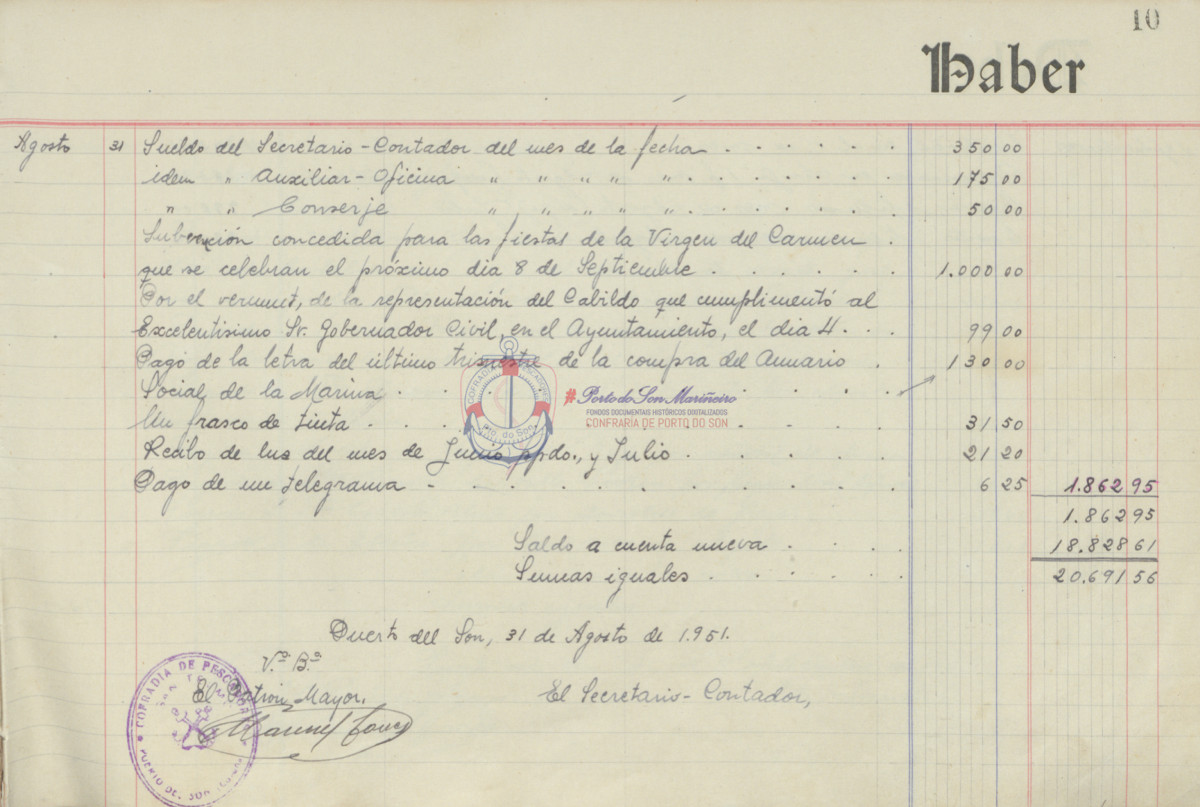 10
Haber
Agosto 31 Sueldo del Secretario-Contador del mes de la fecha . . . . . . 350 00
idem " Auxiliar-Oficina " " " " " . . . . . . . 175 00
" " Conserje " " " " " . . . . . . . 50 00
Subvención concedida para las fiestas de la Virgen del Carmen .
que se celebran el próximo dia 8 de Septiembre . . . . . . 1.000 00
Por el vermut, de la representación del Cabildo que cumplimentó al
Excelentisimo Sr. Gobernador Civil, en el Ayuntamiento, el dia 4 . . . 99 00
Pago de la letra del último trimestre de la compra del Anuario . 130 00
Social de la Marina . . . . . . . . . .
Un frasco de tinta . . . . . . . . . . 31 50
Recibo de luz del mes de Junio ppdo., y Julio . . . . . . 21 20
Pago de un telegrama - . . . . . . . . . 6 25 1.862 95
1.862 95
Saldo a cuenta nueva . . . . 18.828 61
Sumas iguales . . . . . . 20.691 56
Puerto del Son, 31 de Agosto de 1.951.
V.º B.º
El Patrón Mayor, El Secretario-Contador,
Manuel
COFRADIA DE PESCADORES
PUERTO DEL SON
COFRADIA
Pto. do Son
#PortodoSonMariñeiro
FONDOS DOCUMENTAIS HISTÓRICOS DIXITALIZADOS
CONFRARÍA DE PORTO DO SON